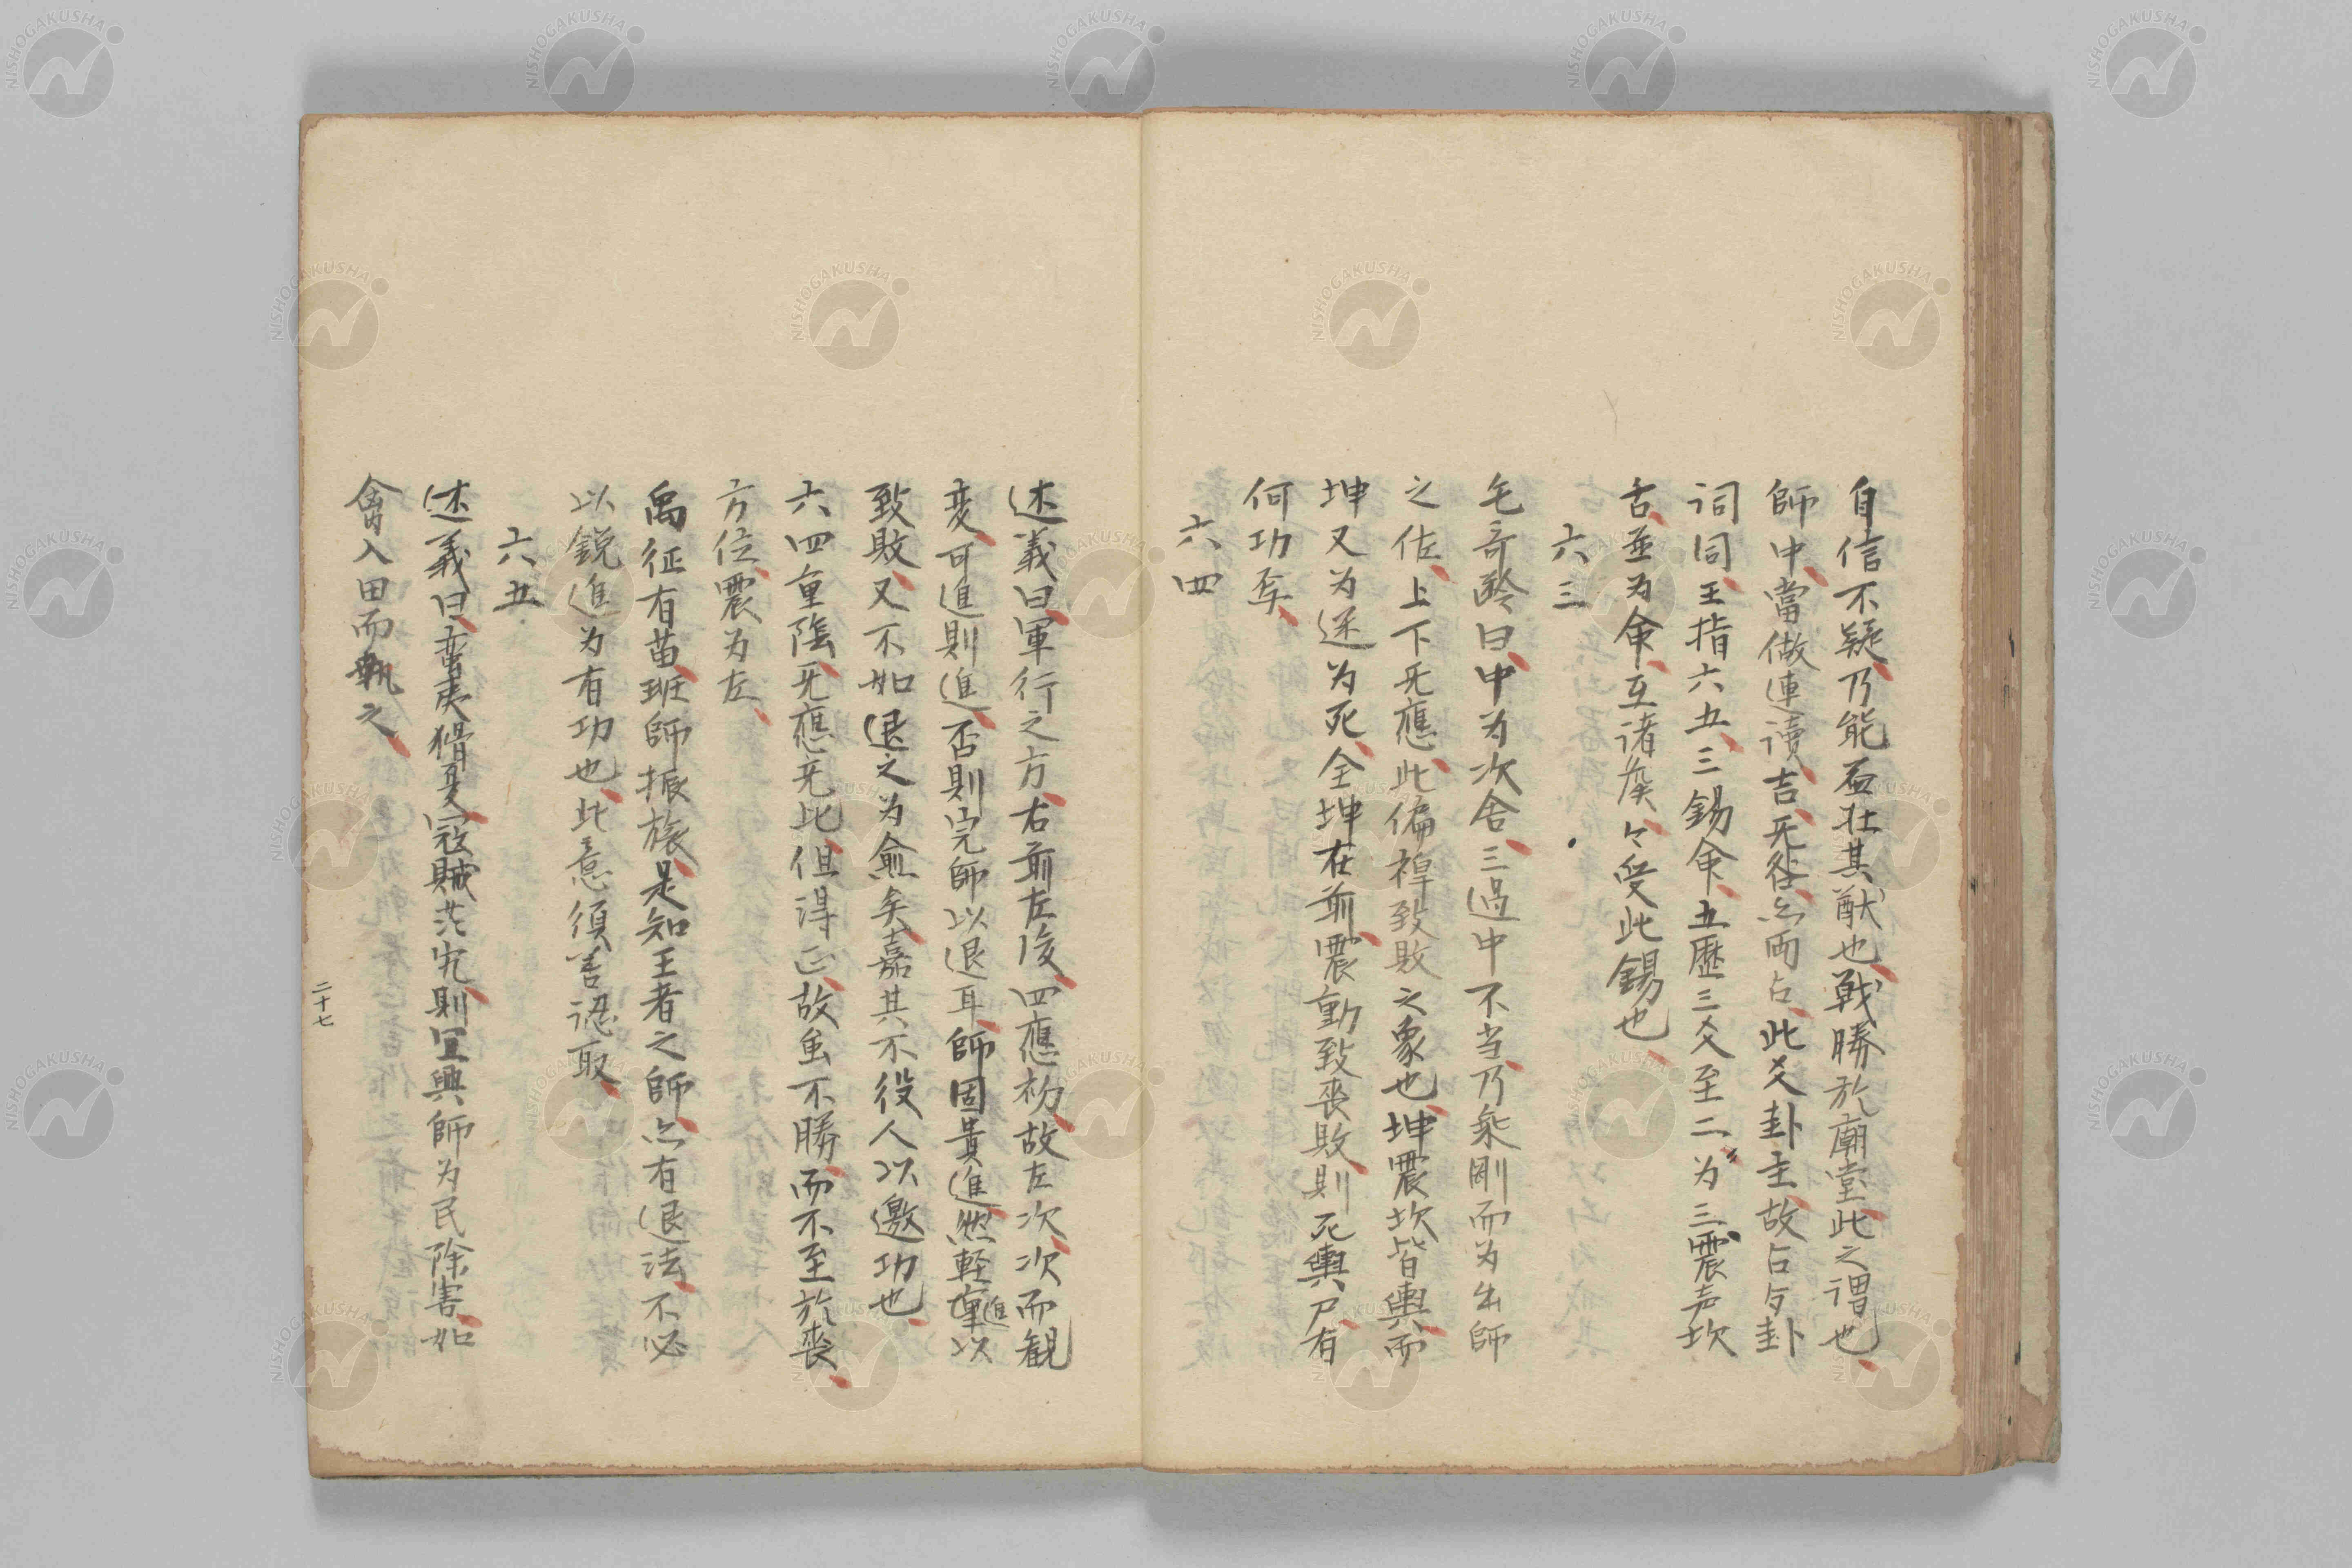 自信不疑乃能盃壮其猷也戦勝於廟堂此之謂也
師中當做連讀吉无咎亦両占此爻卦主故占与卦
詞同王指六五三錫命五歴三爻至二〻為三震声坎
舌並为命互诸侯々受此錫也
六三
毛奇齡曰中为次舎三過中不当乃乗剛而为出師
之佐上下无應此偏裨致敗之象也坤震坎皆輿而
坤又为迷为死全坤在前震動致喪敗則死輿尸有
何功乎
六四
述義曰軍行之方右前左後四應初故左次次而観
変可進則進否則完師以退耳師固貴進然軽進以
致敗又不如退之为愈矣嘉其不役人以邀功也
六四重陰无應无比但得正故虽不勝而不至於喪
方位震为左
禹征有苗班師振旅是知王者之師亦有退法不必
以鋭進为有功也此意須善認取
六五
述義曰蛮夷猾夏寇賊姦宄則宜興師为民除害如
禽入田而執之
二十七
NISHOGAKUSHA